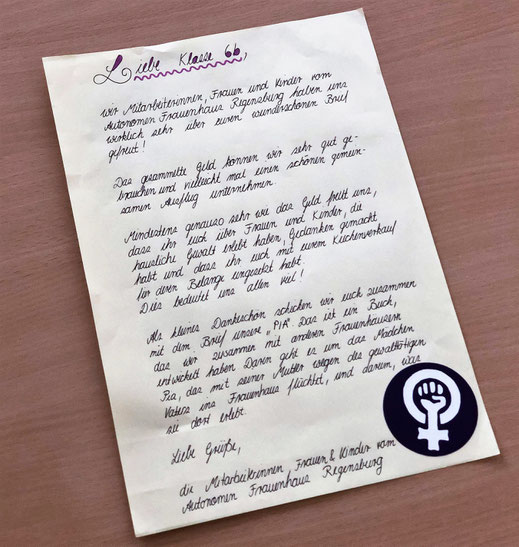 Liebe Klasse 6b,
wir Mitarbeiterinnen, Frauen und Kinder vom
Autonomen Frauenhaus Regensburg haben uns
wirklich sehr über euren wunderschönen Brief
gefreut!
Das gesammelte Geld können wir sehr gut ge-
brauchen und vielleicht mal einen schönen gemein-
samen Ausflug unternehmen.
Mindestens genauso sehr wie das Geld freut uns,
dass ihr euch über Frauen und Kinder, die
häusliche Gewalt erlebt haben, Gedanken gemacht
habt und dass ihr euch mit eurem Kuchenverkauf
für deren Belange eingesetzt habt.
Dies bedeutet uns allen viel!
Als kleines Dankeschön schicken wir euch zusammen
mit dem Brief unsere „PIA". Das ist ein Buch,
das wir zusammen mit anderen Frauenhäusern
entwickelt haben. Darin geht es um das Mädchen
Pia, das mit seiner Mutter wegen des gewalttätigen
Vaters ins Frauenhaus flüchtet, und darum, was
sie dort erlebt.
Liebe Grüße,
die Mitarbeiterinnen, Frauen & Kinder vom
Autonomen Frauenhaus Regensburg